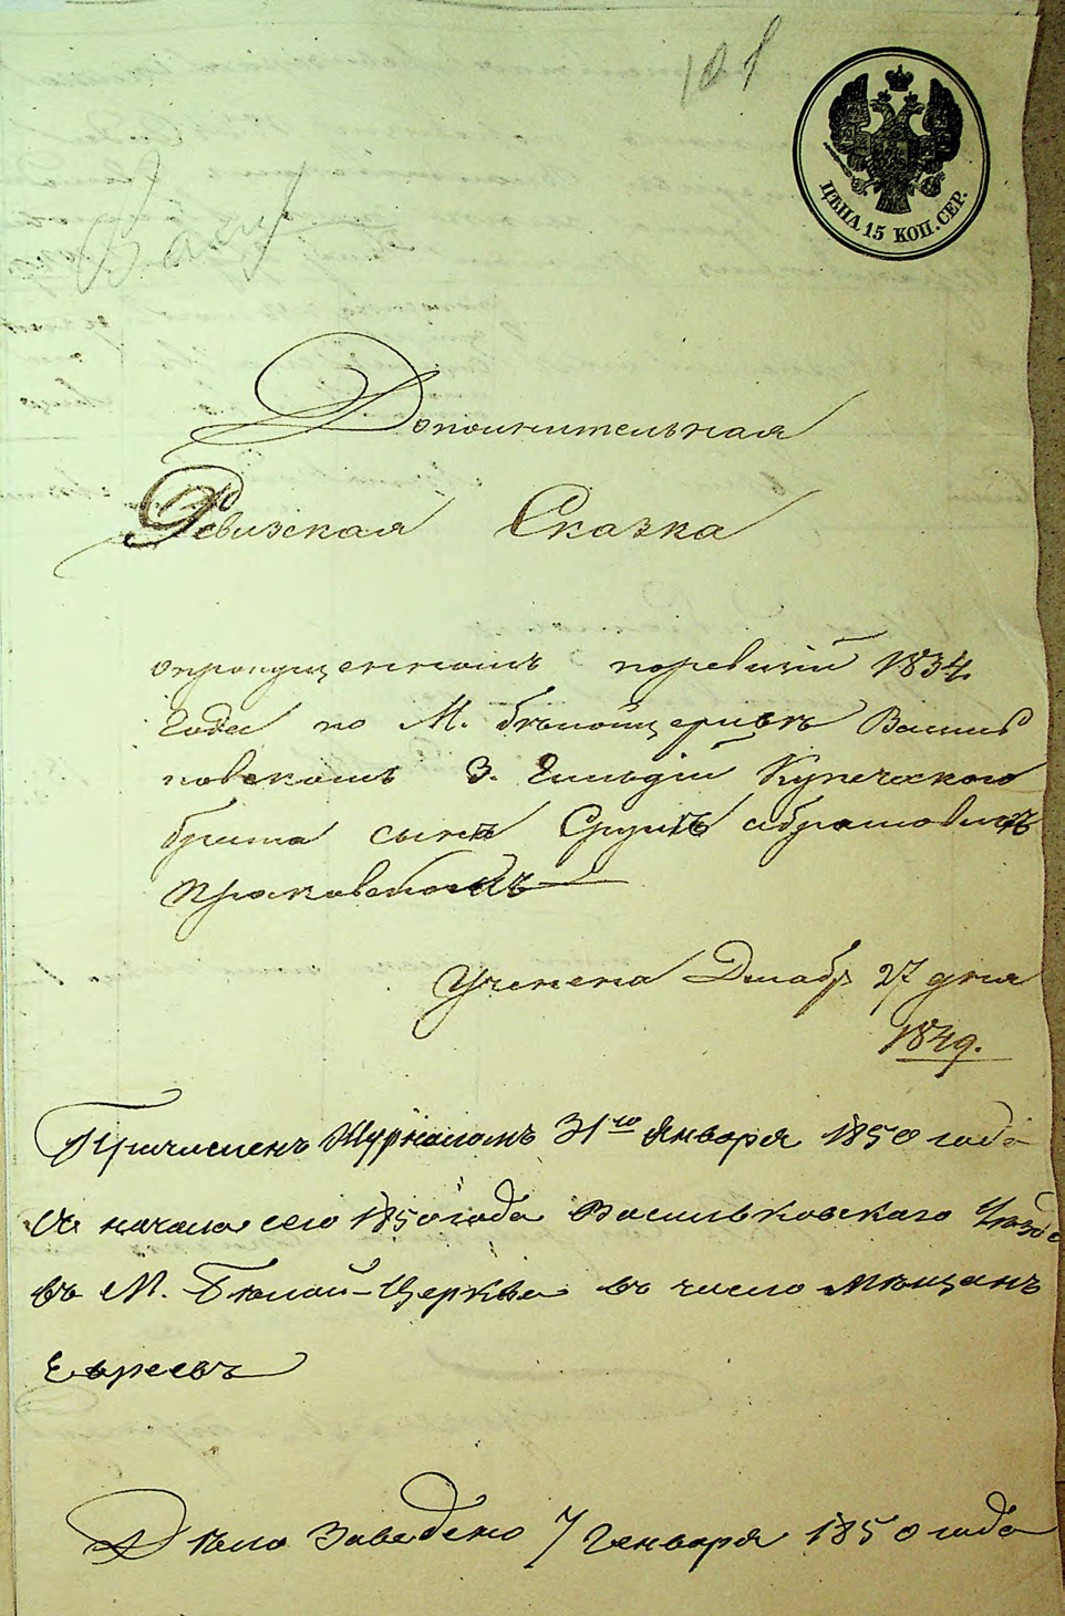 ЦѢНА 15 КОП. СЕР.
Дополнительная
Ревизская Сказка
опропущенномъ поревизіи 1834
года по М. бѣлойцерквѣ Василь
ковскомъ 3. Гильдіи Купеческого
брата сынѣ Сруль абрамовичѣ
Учинена Декабр 27 дня
1849.
Причисленъ Журналомъ 31го Января 1850 года
съ начала сего 1850 года Васильковскаго Уѣзда
въ М. Бѣлой-Церкве въ число мѣщанъ
Евреевъ
Дѣло Заведено 7 Генваря 1850 года